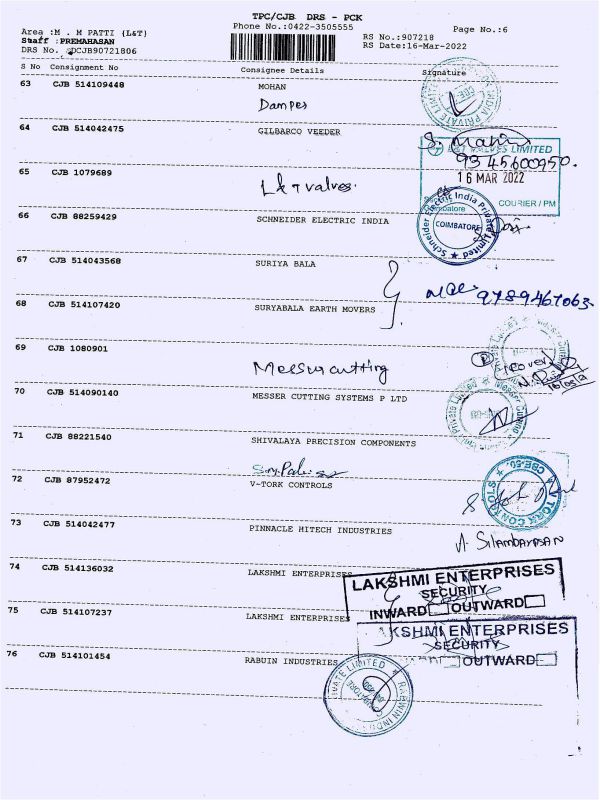 TPC/CJB DRS - PCK
Area :M . M PATTI {L&T}
Phone No.:0422-3505555
Page No.:6
Staff :PREMAHASAN
RS No.:907218
DRS No. :DCJB90721806
RS Date:16-Mar-2022
S No Consignment No Consignee Details Signature
63 CJB 514109448 MOHAN
64 CJB 514042475 GILBARCO VEEDER
L&T VALVES LIMITED
9345600950.
16 MAR 2022
65 CJB 1079689 L&T valves.
COURIER / PM
Coimbatore
66 CJB 88259429 SCHNEIDER ELECTRIC INDIA
Schneider Electric India Private Limited
COIMBATORE
67 CJB 514043568 SURIYA BALA
9789467063
68 CJB 514107420 SURYABALA EARTH MOVERS
69 CJB 1080901
cutting
70 CJB 514090140 MESSER CUTTING SYSTEMS P LTD
71 CJB 88221540 SHIVALAYA PRECISION COMPONENTS
72 CJB 87952472 V-TORK CONTROLS
V TORK CONTROLS
73 CJB 514042477 PINNACLE HITECH INDUSTRIES
74 CJB 514136032 LAKSHMI ENTERPRISES
LAKSHMI ENTERPRISES
SECURITY
INWARD OUTWARD
75 CJB 514107237 LAKSHMI ENTERPRISES
LAKSHMI ENTERPRISES
SECURITY
OUTWARD
76 CJB 514101454 RABUIN INDUSTRIES